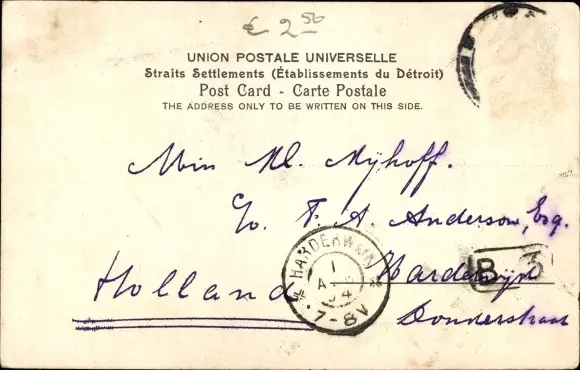 € 2.50
UNION POSTALE UNIVERSELLE
Straits Settlements (Établissements du Détroit)
Post Card - Carte Postale
THE ADDRESS ONLY TO BE WRITTEN ON THIS SIDE.
Min Nijhoff.
C/o. F. A. Anderson, Esq.
Harderwijk
Holland
Donderstraat
HARDERWIJK
1
04
7-8V
B 3